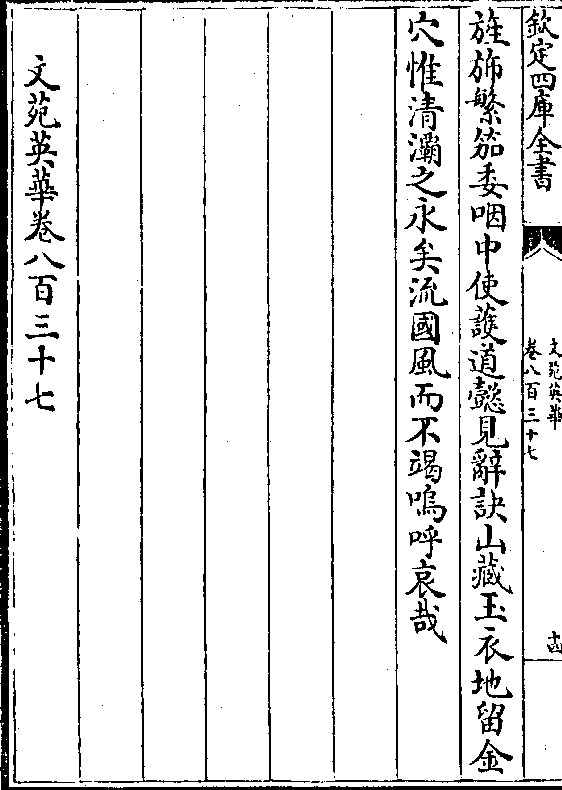 欽定四庫全書
文苑英華
卷八百三十七
十四
旌斾繁笳委咽中使護道懿見辭訣山藏玉衣地留金
穴惟清灞之永矣流國風而不竭嗚呼哀哉
文苑英華卷八百三十七